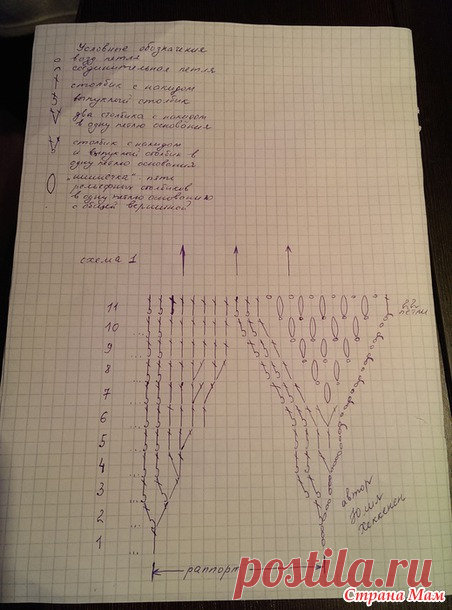 Условные обозначения
возд. петля
соединительная петля
столбик с накидом
выпуклый столбик
два столбика с накидом
в одну петлю основания
столбик с накидом
и выпуклый столбик в
одну петлю основания
"шишечка" - пять
рельефных столбиков
в одну петлю основания
с общей вершиной
схема 1
11
10
9
8
7
6
5
4
3
2
1
петли
автор
Юлия
Хеккенен
раппорт
postila.ru
Страна Мам